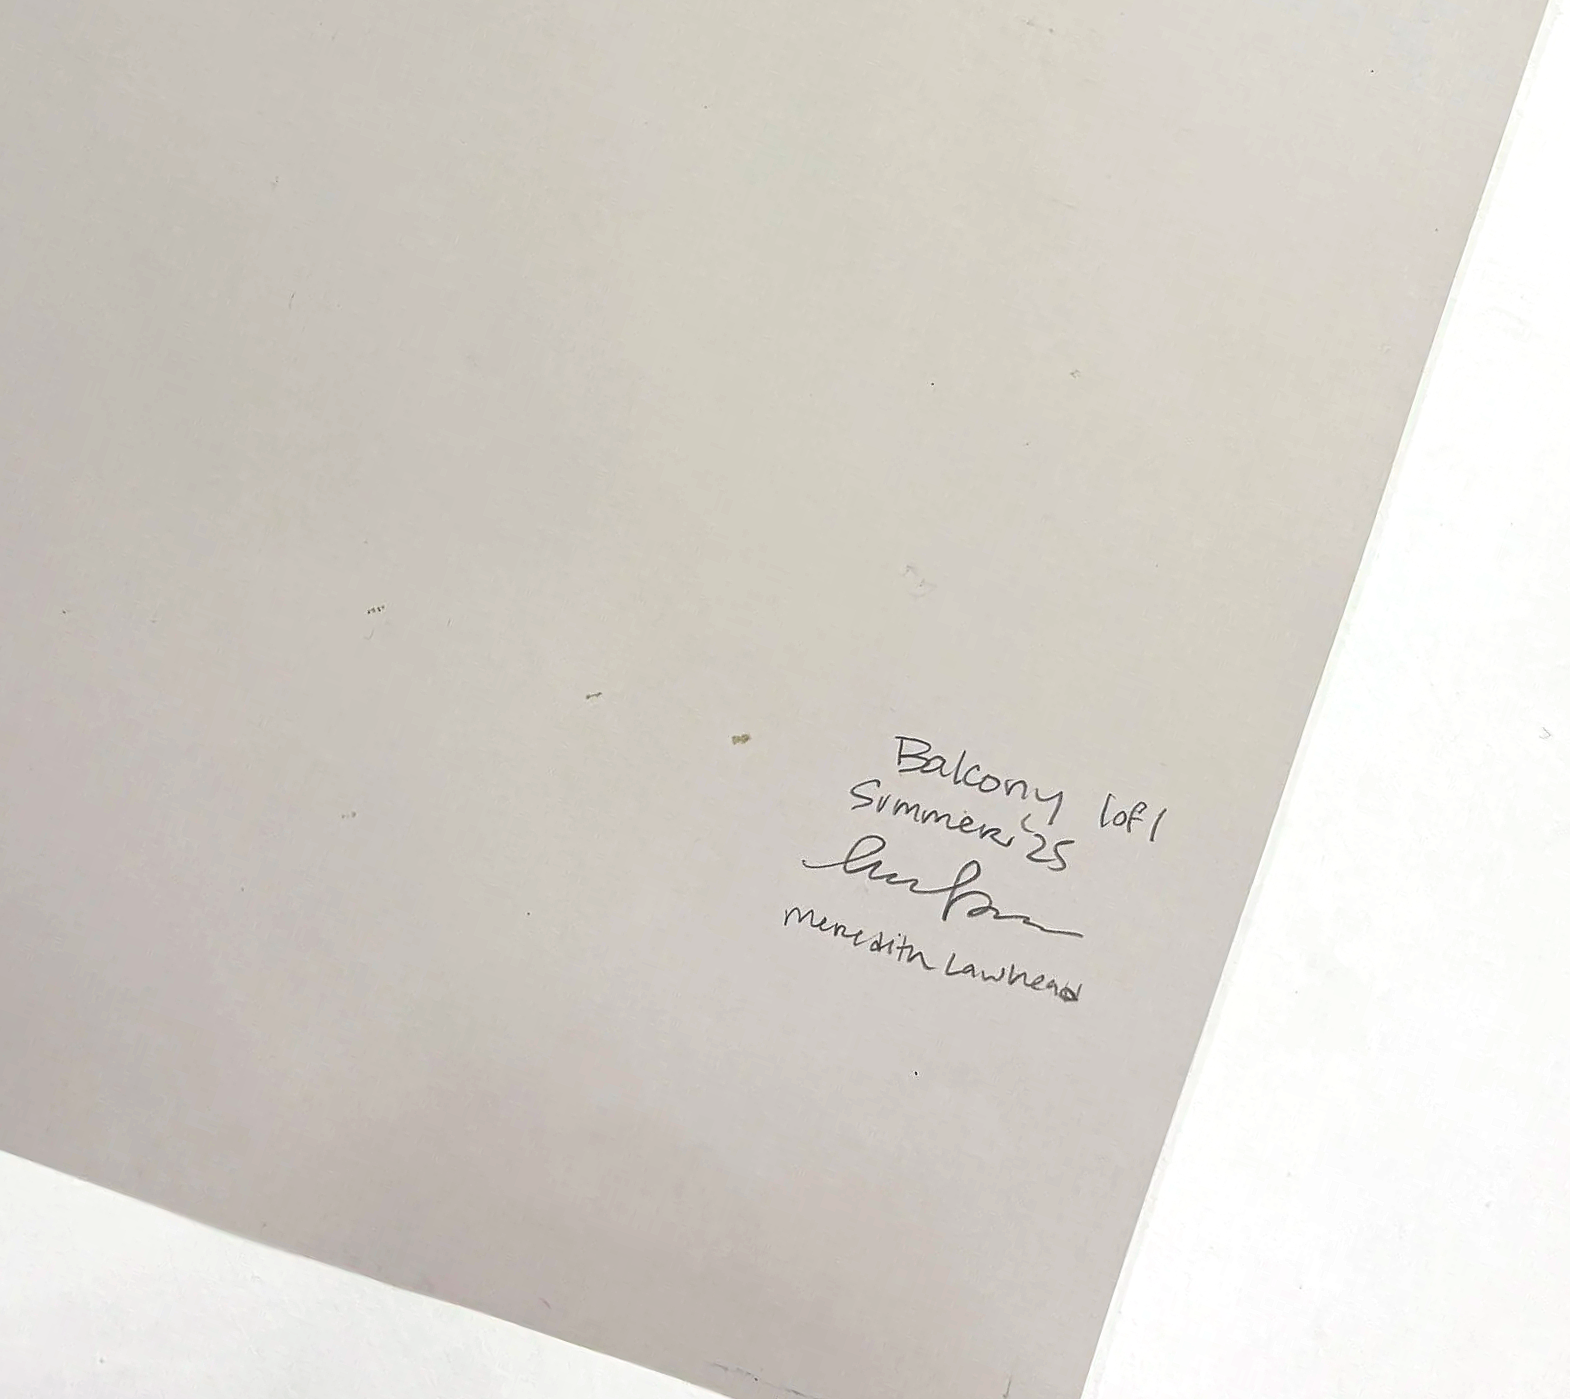 Balcony 1of1
Summer '25
Meredith Lawhead